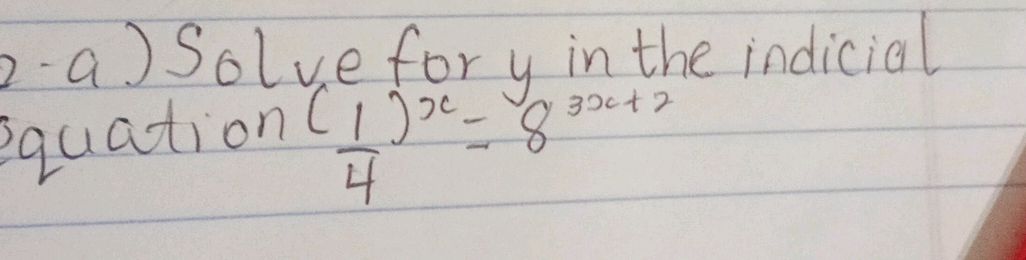 2-a) Solve for y in the indicial
equation (1/4)^x = 8^3x+2